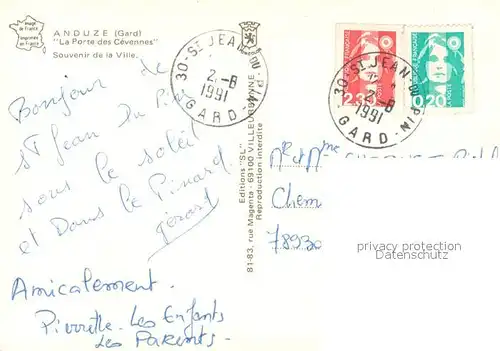 Image de France
Imprimée en France
ANDUZE (Gard)
"La Porte des Cévennes"
Souvenir de la Ville.
Bonjour de
St Jean Du Pin
sous le soleil
et Dans le Pinard
gérard
Amicalement.
Pierrette. Les Enfants
Les Parents.
Editions "SL"
81-83, rue Magenta - 69100 VILLEURBANNE
Reproduction interdite
30-ST JEAN DU PIN
2-8
1991
GARD
2,30
0,20
LA POSTE
30-ST JEAN DU PIN
2-8
1991
GARD
Mr et Mme
Chem
78930
privacy protection
Datenschutz